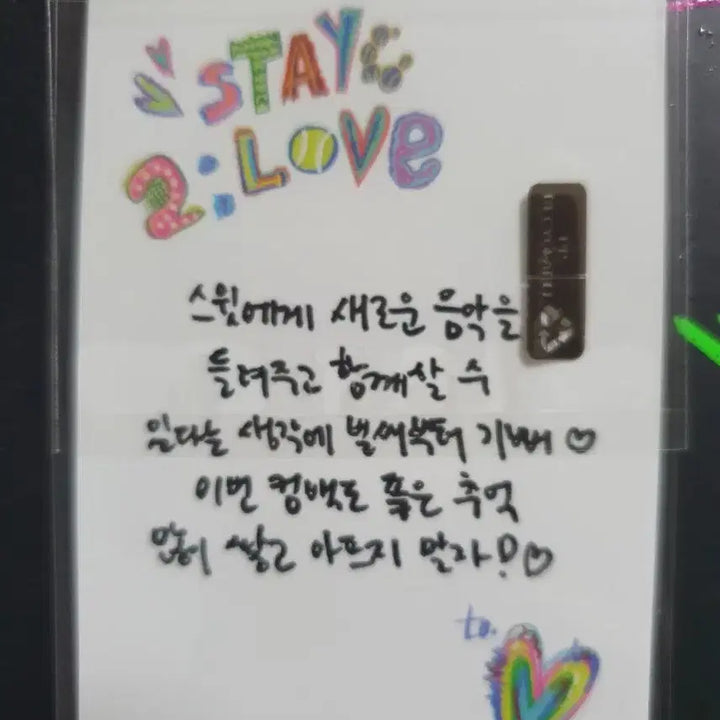 STAYC
2:LOVE
스윗에게 새로운 음악을
들려주고 함께할 수
있다는 생각에 벌써부터 기뻐 ♡
이번 컴백도 좋은 추억
많이 쌓고 아프지 말자!♡
to.